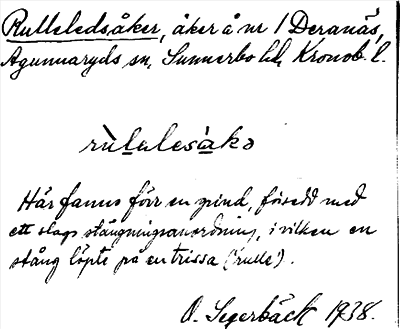 Rulleledsåker, åker å nr 1 Deranäs,
Agunnaryds sn, Sunnerbo hd, Kronob. l.
rùlalesàkə
Här fanns förr en grind, försedd med
ett slags stängningsanordning, i vilken en
stång löpte på en trissa ('rulle').
O. Segerbäck 1938.